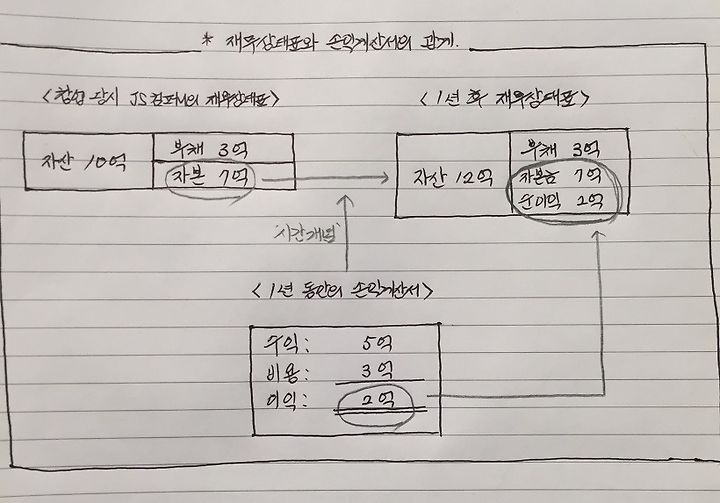 * 재무상태표와 손익계산서의 관계.
<창업 당시 JS컴퍼니의 재무상태표>
자산 10억
부채 3억
자본 7억
<1년 후 재무상태표>
자산 12억
부채 3억
자본금 7억
순이익 2억
'시간개념'
<1년 동안의 손익계산서>
수익: 5억
비용: 3억
이익: 2억